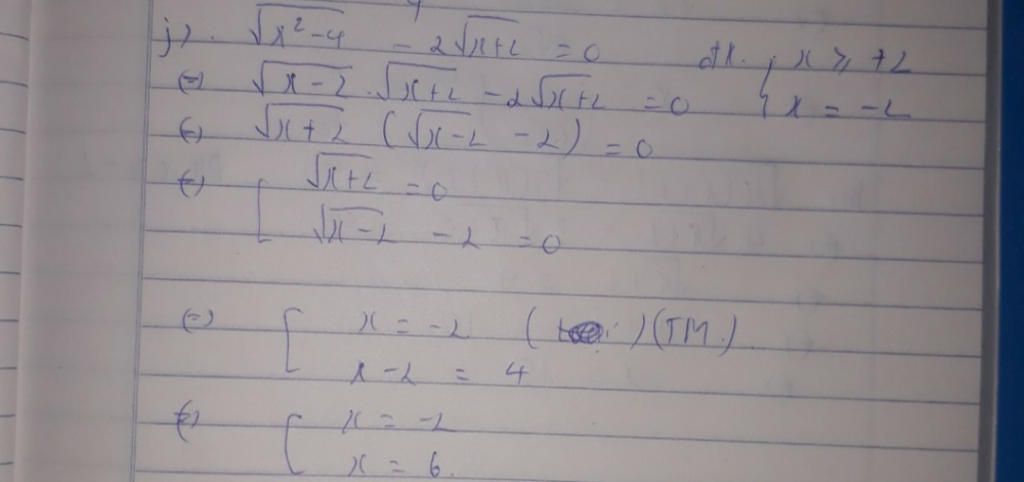 j). √(x²-4) - 2√(x+2) = 0 đk. { x ≥ +2
(=) √(x-2) . √(x+2) - 2√(x+2) = 0 { x = -2
(=) √(x+2) (√(x-2) - 2) = 0
(=) [ √(x+2) = 0
√(x-2) - 2 = 0
(=) [ x = -2 (TM.)
x - 2 = 4
(=) [ x = -2
x = 6.